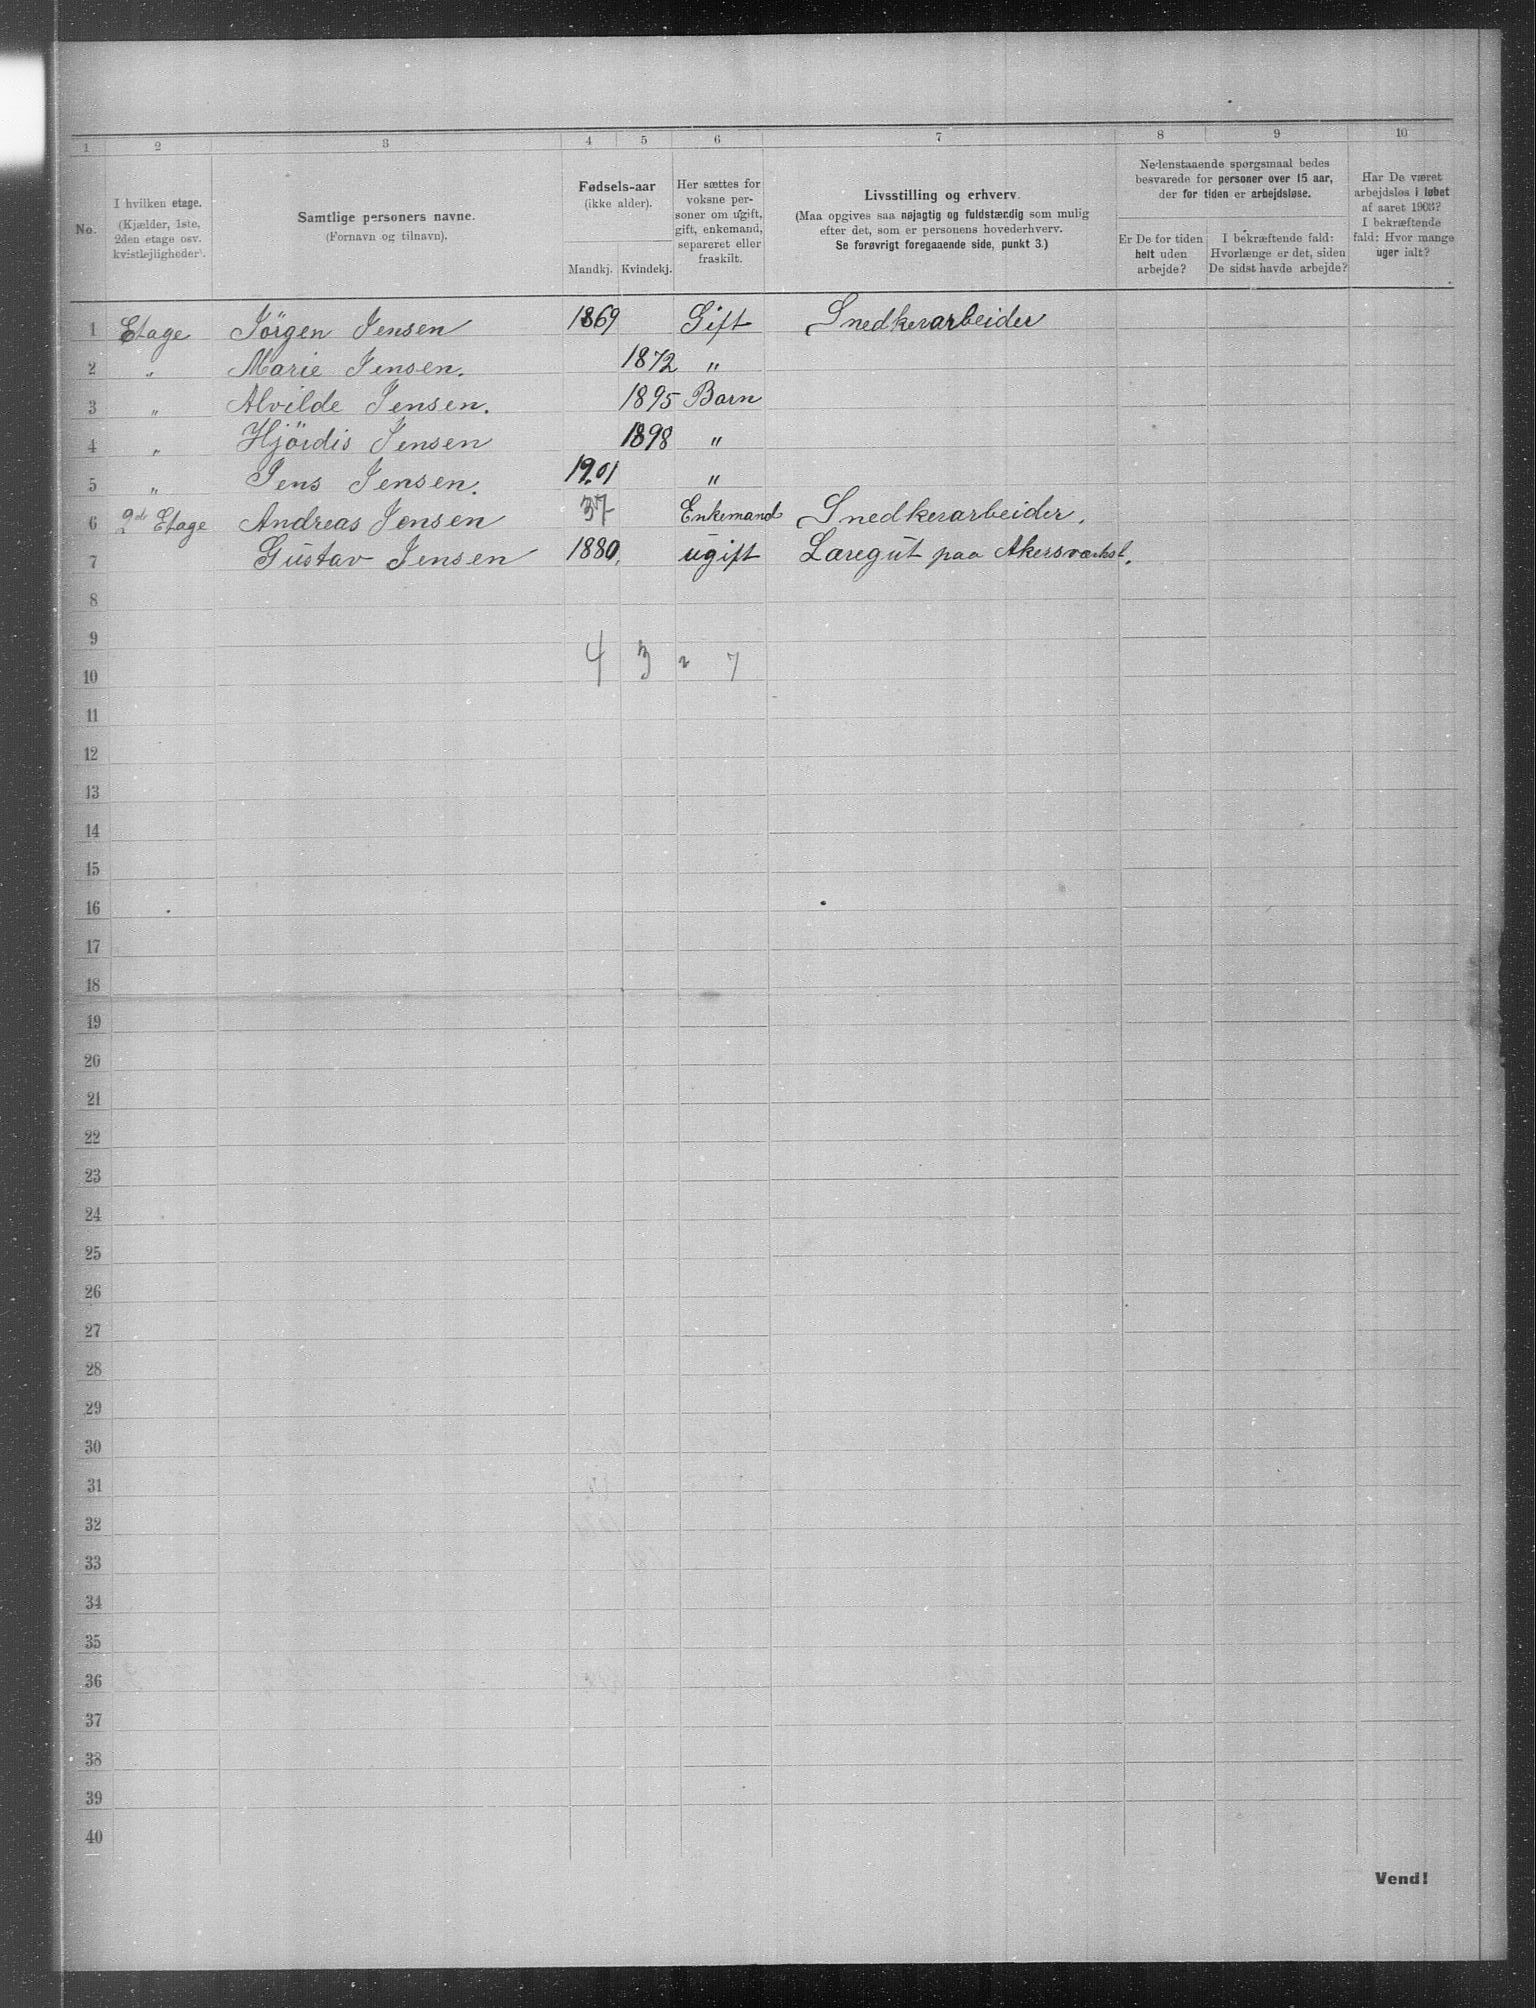 1 2 3 4 5 6 7 8 9 10
No.
I hvilken etage.
(Kjælder, 1ste,
2den etage osv.
kvistlejligheder).
Samtlige personers navne.
(Fornavn og tilnavn).
Fødsels-aar
(ikke alder).
Mandkj. Kvindekj.
Her sættes for
voksne per-
soner om ugift,
gift, enkemand,
separeret eller
fraskilt.
Livsstilling og erhverv.
(Maa opgives saa nøjagtig og fuldstændig som mulig
efter det, som er personens hovederhverv.
Se forøvrigt foregaaende side, punkt 3.)
Nedenstaaende spørgsmaal bedes
besvarede for personer over 15 aar,
der for tiden er arbejdsløse.
Er De for tiden
helt uden
arbejde?
I bekræftende fald:
Hvorlænge er det, siden
De sidst havde arbejde?
Har De været
arbejdsløs i løbet
af aaret 1903?
I bekræftende
fald: Hvor mange
uger ialt?
1 Etage Jörgen Jensen 1869 Gift Snedkerarbeider
2 " Marie Jensen. 1872 "
3 " Alvilde Jensen. 1895 Barn
4 " Hjördis Jensen 1898 "
5 " Jens Jensen. 1901 "
6 2de Etage Andreas Jensen 37 Enkemand Snedkerarbeider.
7 Gustav Jensen 1880. ugift Læregut paa Akersværkst.
8
9
4 3 7
10
11
12
13
14
15
16
17
18
19
20
21
22
23
24
25
26
27
28
29
30
31
32
33
34
35
36
37
38
39
40
Vend!